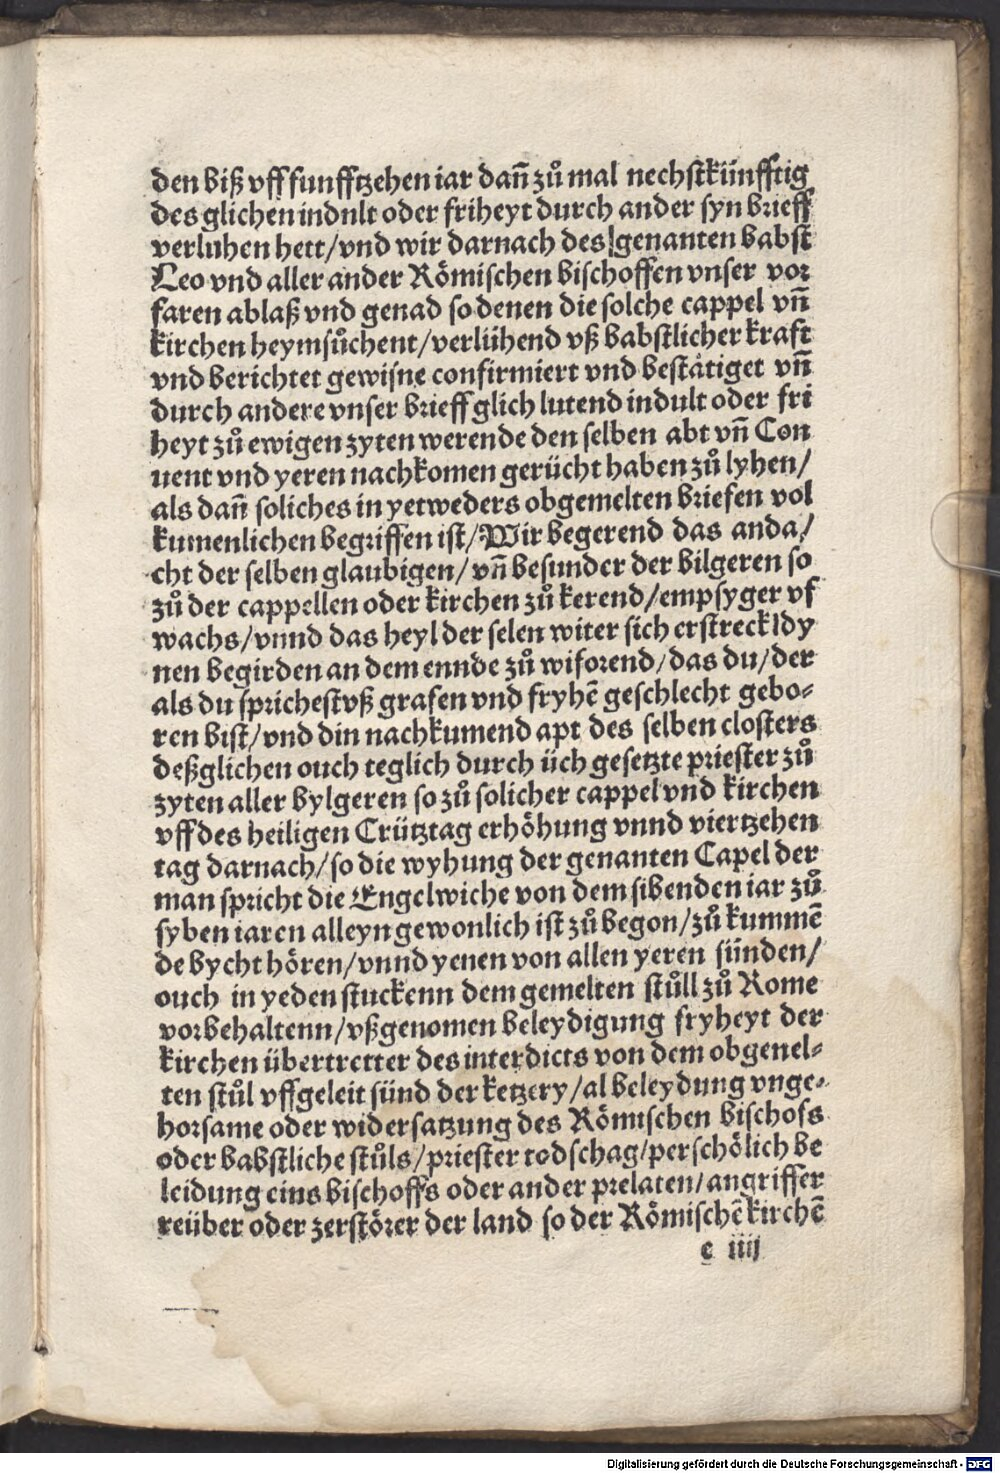 den biß vff funfftzehen iar dañ zů mal nechstkünfftig
des glichen indult oder friheyt durch ander syn brieff
verluhen hett/vnd wir darnach des genanten babst
Leo vnd aller ander Römischen bischoffen vnser vor
faren ablaß vnd genad so denen die solche cappel vñ
kirchen heymsůchent/verlühend vß babstlicher kraft
vnd berichtet gewisne confirmiert vnd bestätiget vñ
durch andere vnser brieff glich lutend indult oder fri
heyt zů ewigen zyten werende den selben abt vñ Con
uent vnd yeren nachkomen gerücht haben zů lyhen/
als dañ soliches in yetweders obgemelten briefen vol
kumenlichen begriffen ist/Wir begerend das anda/
cht der selben glaubigen/vñ besunder der bilgeren so
zů der cappellen oder kirchen zů kerend/empsyger vf
wachs/vnnd das heyl der selen witer sich erstreck/dy
nen begirden an dem ennde zů wiforend/das du/der
als du sprichest vß grafen vnd fryhē geschlecht gebo-
ren bist/vnd din nachkumend apt des selben closters
deßglichen ouch teglich durch üch gesetzte priester zů
zyten aller bylgeren so zů solicher cappel vnd kirchen
vff des heiligen Crütztag erhöhung vnnd viertzehen
tag darnach/so die wyhung der genanten Capel der
man spricht die Engelwiche von dem sibenden iar zů
syben iaren alleyn gewonlich ist zů begon/zů kummē
de bycht hören/vnnd yenen von allen yeren sünden/
ouch in yeden stuckenn dem gemelten stůll zů Rome
vorbehaltenn/vßgenomen beleydigung fryheyt der
kirchen übertretter des interdicts von dem obgenel-
ten stůl vffgeleit sünd der ketzery/al beleydung vnge-
horsame oder widersatzung des Römischen bischofs
oder babstliche stůls/priester todschag/perschölich be
leidung eins bischoffs oder ander prelaten/angriffer
reüber oder zerstörer der land so der Römischē kirchē
c iiij
Digitalisierung gefördert durch die Deutsche Forschungsgemeinschaft - DFG